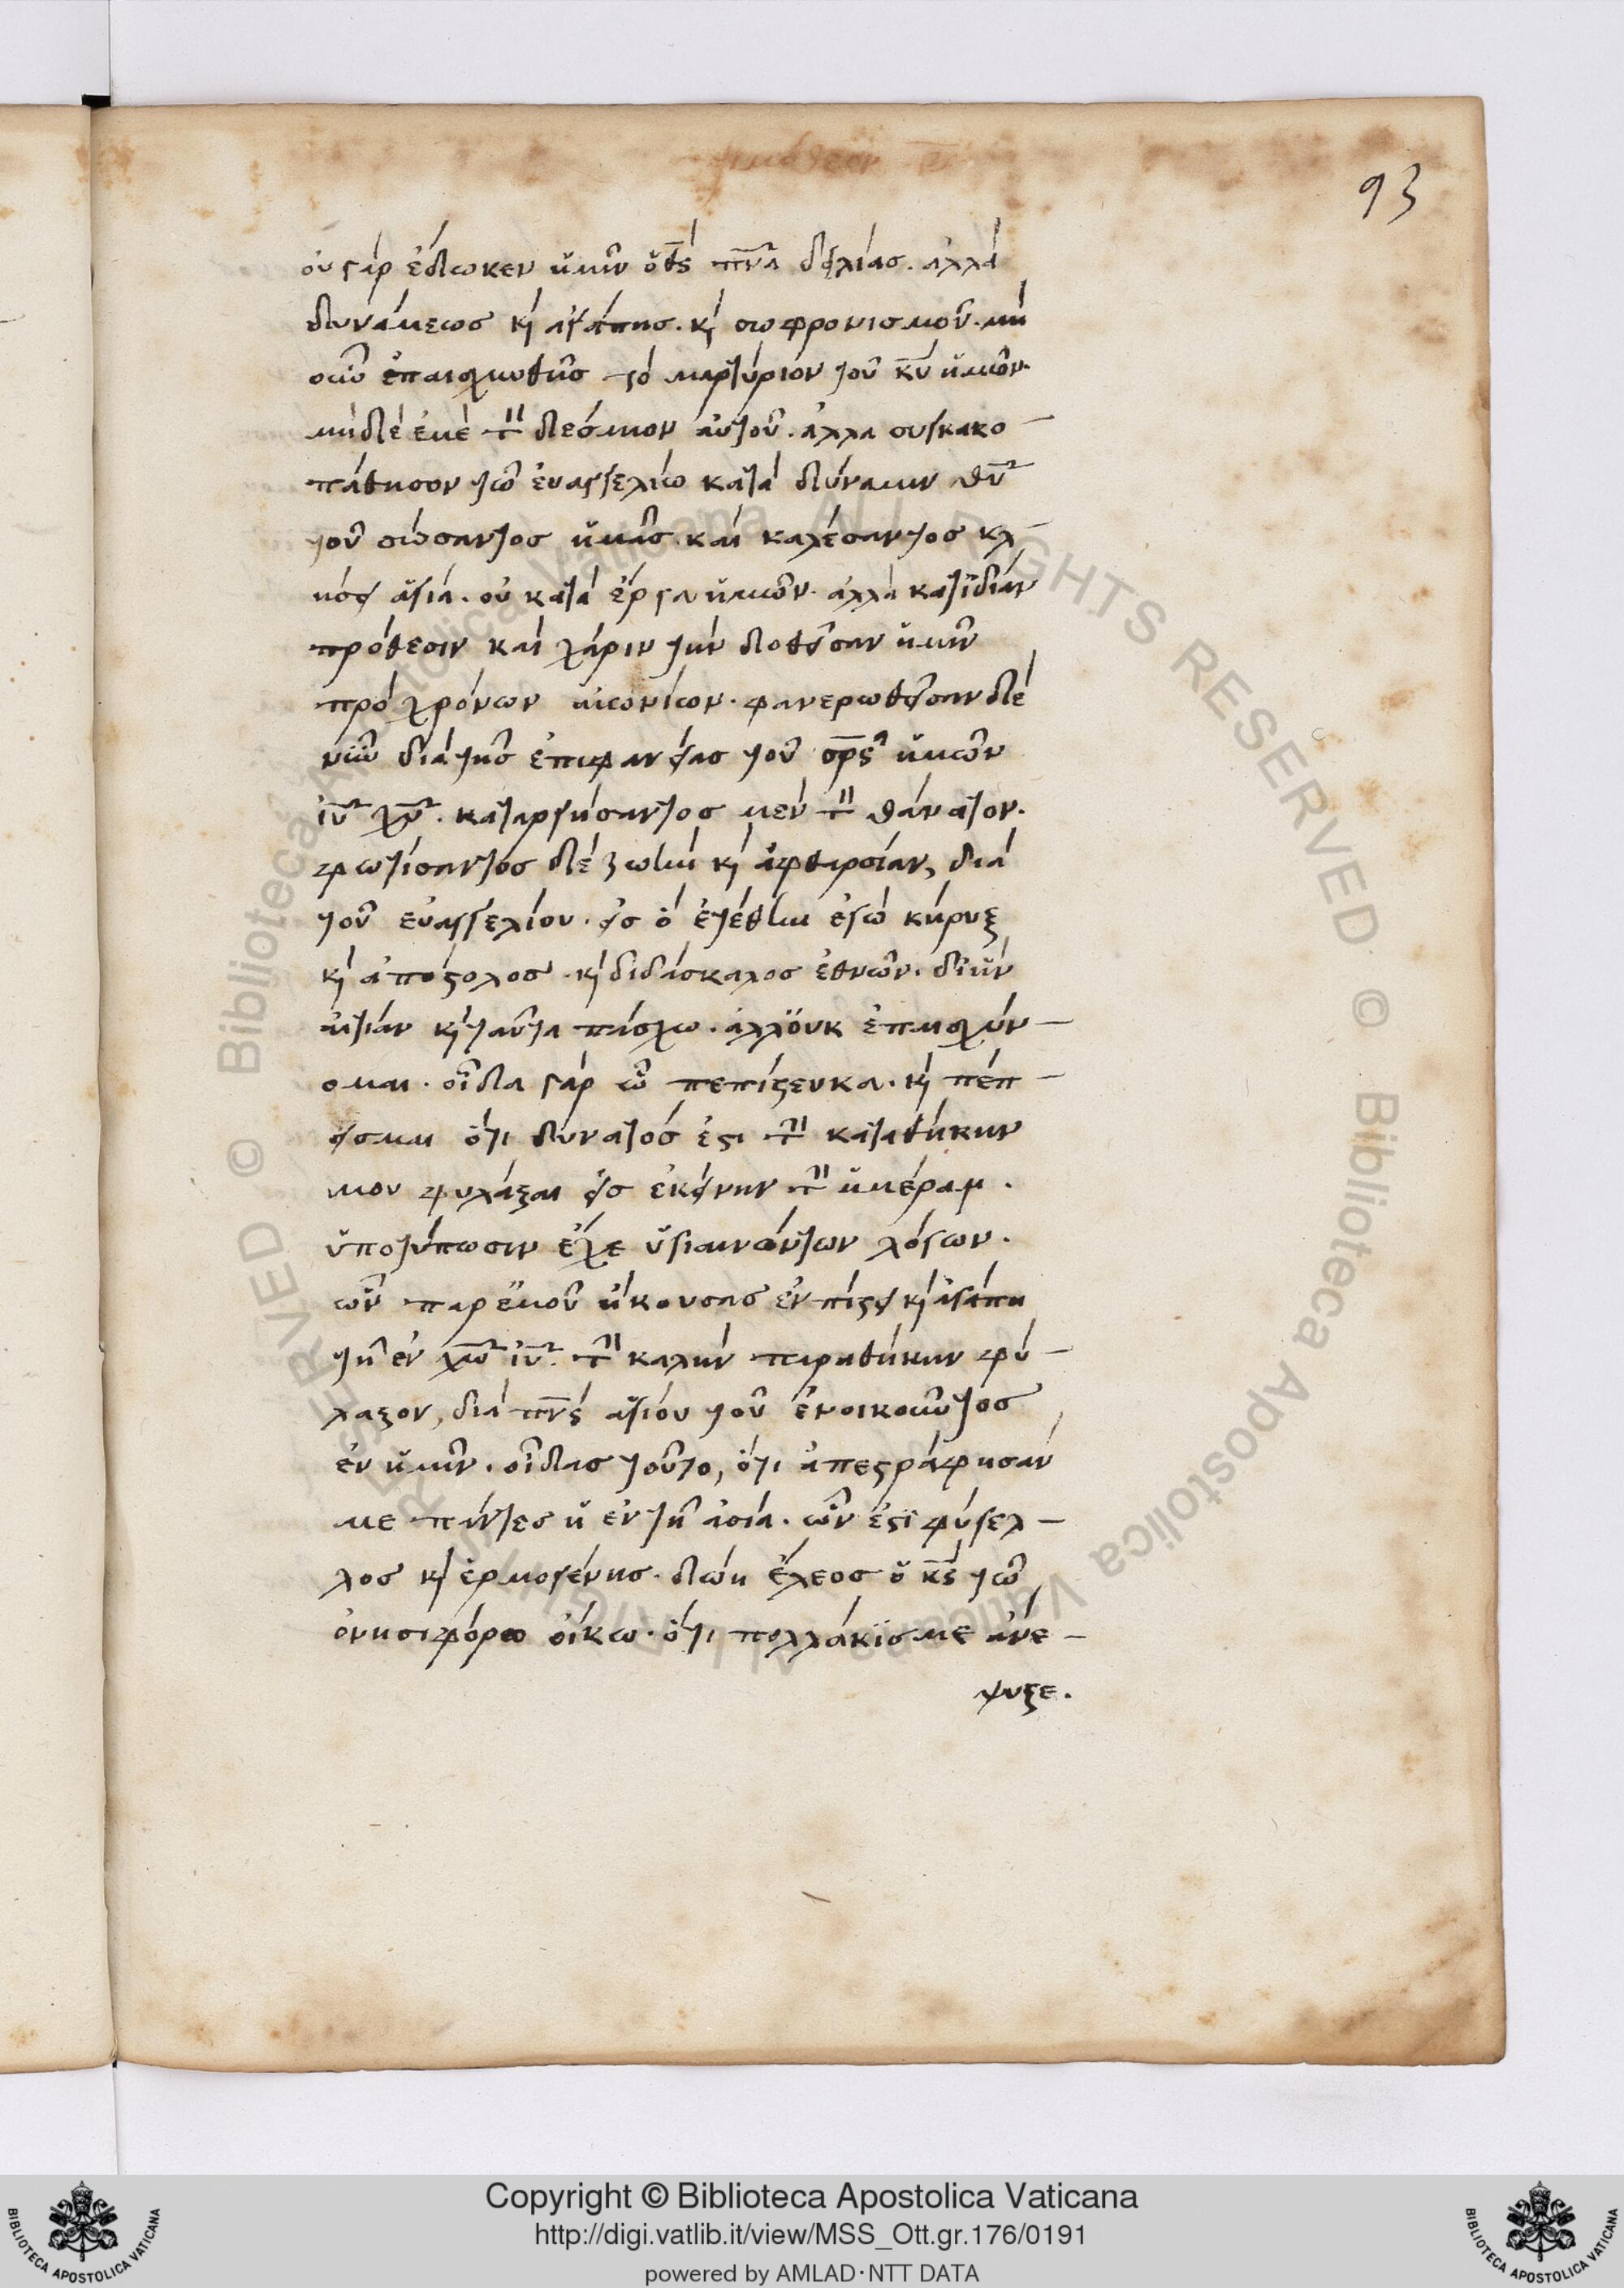 93
οὐ γὰρ ἔδωκεν ἡμῖν ὁ θς πνα δειλίας. ἀλλὰ
δυνάμεως κỳ ἀγάπης. κỳ σωφρονισμοῦ. μὴ
οὖν ἐπαισχυνθῆς τὸ μαρτύριον τοῦ κυ ἡμῶν.
μηδὲ ἐμὲ τὸν δέσμιον αὐτοῦ. ἀλλὰ συγκακο-
πάθησον τῶ εὐαγγελίω κατὰ δύναμιν θυ
τοῦ σώσαντος ἡμᾶς. καὶ καλέσαντος κλ-
ήσει ἁγία. οὐ κατὰ ἔργα ἡμῶν. ἀλλὰ κατιδίαν
πρόθεσιν καὶ χάριν τὴν δοθεῖσαν ἡμῖν
πρὸ χρόνων αἰωνίων. φανερωθεῖσαν δὲ
νῦν διὰ τῆς ἐπιφανείας τοῦ σρς ἡμῶν
ιυ χυ. καταργήσαντος μὲν τὸν θάνατον.
φωτίσαντος δὲ ζωὴν κỳ ἀφθαρσίαν, διὰ
τοῦ εὐαγγελίου. εἰς ὃ ἐτέθην ἐγὼ κήρυξ
κỳ ἀπόστολος. κỳ διδάσκαλος ἐθνῶν. δι ἣν
αἰτίαν κỳ ταῦτα πάσχω. ἀλλ οὐκ ἐπαισχύν-
ομαι. οἶδα γὰρ ὧ πεπίστευκα. κỳ πέπ-
εισμαι ὅτι δυνατός ἐστι τὴν καταθήκην
μου φυλάξαι εἰς ἐκείνην τὴν ἡμέραν.
ὑποτύπωσιν ἔχε ὑγιαινόντων λόγων.
ὧν παρ ἐμοῦ ἤκουσας ἐν πίστει κỳ ἀγάπη
τῆ ἐν χω ιυ. τὴν καλὴν παραθήκην φύ-
λαξον, διὰ πνς ἁγίου τοῦ ἐνοικοῦντος
ἐν ἡμῖν. οἶδας τοῦτο, ὅτι ἀπεστράφησάν
με πάντες ἡ ἐν τῆ ἀσία. ὧν ἐστι φύγελ-
λος κỳ ἑρμογένης. δώη ἔλεος ὁ κς τῶ
ὀνησιφόρω οἴκω. ὅτι πολλάκις με ἀνέ-
ψυξε.
Copyright © Biblioteca Apostolica Vaticana
http://digi.vatlib.it/view/MSS_Ott.gr.176/0191
powered by AMLAD·NTT DATA